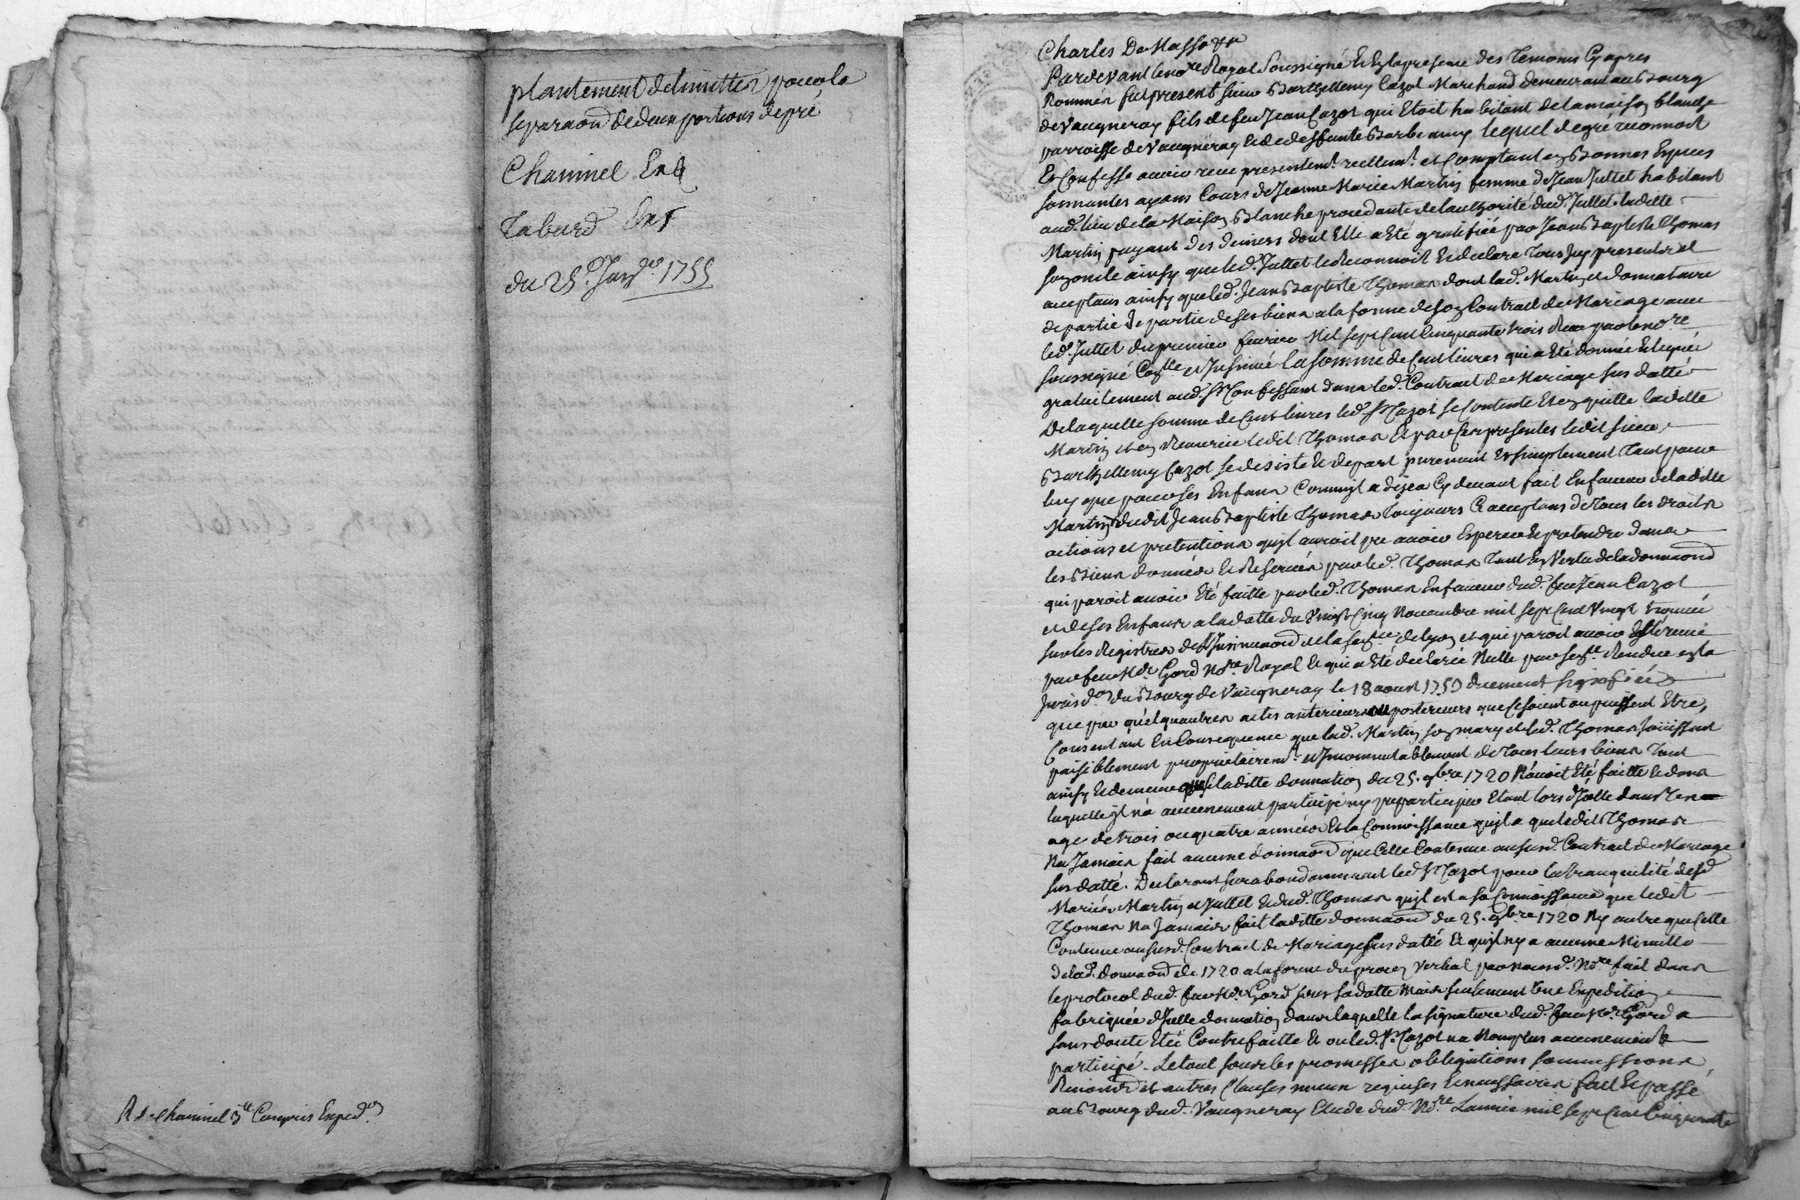 plantement de limittes pour la
separaon de deux portions de pré
Chaninel Et
Tabard
du 25e. Janer 1755
R. de Chaninel 3tt Compris Exped.on
Charles De Masso &a
Pardevant le nore Royal Soussigné Et En la presence des Temoins Cy apres
Nommés fut present sieur Barthellemy Cazot Marchand demeurant au Bourg
de Vaugneray fils de feu Jean Cazot qui Etoit habitant de la maison blanche
parroisse de Vaugneray Et de deffunte Barbe lequel de gré reconnoit
Et Confesse avoir receu presentemt. reellemt. et Comptant en Bonnes Especes
sonnantes ayans Cours de Jeanne Marie Martin femme de Jean Juttet habitant
aud. lieu de la Maison Blanche procedante de l'authorité dud. Juttet ladite
Martin payant des deniers dont Elle a Eté gratifiée par Jean Baptiste Thomas
son oncle ainsy que led. Juttet le Reconnoit Et declare Tous Icy presents et
acceptans ainsy que led. Jean Baptiste Thomas dont lad. Martin est donnataire
de partie de partie de ses biens a la forme de son Contract de Mariage avec
led. Juttet du premier fevrier Mil sept Cent Cinquante trois Receu par le nore
soussigné Collé et Insinué la somme de Cent livres qui a Eté donnée Et leguée
gratuitement aud. sr. Confessant dans led. Contract de Mariage sus datté
De laquelle somme de Cent livres led. sr. Cazot se Contente Et en quitte laditte
Martin et en Remercie ledit Thomas Et par Ces presentes ledit sieur
Barthellemy Cazot se desiste Et depart purement Et simplement Tant pour
luy que pour ses Enfans Comm'il a déja Cy devant fait En faveur de laditte
Martin dudit Jean Baptiste Thomas Toujours acceptans de Tous les droits
actions et pretentions qu'il auroit pu avoir Esperer Et pretendre dans
les Biens donnés Et Reservés par led. Thomas Tant En Vertu de la donnaon
qui paroit avoir Eté faitte par led. Thomas En faveur dud. feu Jean Cazot
et de ses Enfans a la datte du Vingt Cinq Novembre mil sept Cent Vingt trouvée
sur les Registres de l'Insinuaon de la senée de Lyon et qui paroit avoir Eté receue
par feu Me. Gord Nore Royal Et qui a Eté declarée Nulle par Sence Rendue en la
Jurisdon du Bourg de Vaugneray le 18 aout 1753 duement signifiée
que par quelquautres actes anterieurs ou posterieurs que Ce soient ou puissent Etre,
Consentant En Consequence que lad. Martin son mary et led. Thomas Jouissent
paisiblement proprietairemt. et Incommutablement de Tous leurs biens Tout
ainsy Et de meme que si laditte donnation du 25. 9bre 1720 N'avoit Eté faitte Et dans
laquelle il n'a aucunement participé ny pu participer Etant lors d'Icelle dans l'en
age de trois ou quatre années Et la Connoissance qu'il a que ledit Thomas
Na Jamais fait aucune donnaon que Celle Contenue au susd. Contract de Mariage
sus datté. Declarant surabondamment led. sr. Cazot pour la tranquilité desd.
Mariés Martin et Juttet Et dud. Thomas qu'il est a sa Connoissance que ledit
Thomas Na Jamais fait laditte donnaon du 25. 9bre 1720 Ny autre que Celle
Contenue au susd. Contract de Mariage sus datté Et qu'il ny a aucune Minutte
de lad. donnaon de 1720 a la forme du procez Verbal par nousd. Nore fait dans
le protocol dud. feu Me. Gord sous sa datte Mais seulement Une Expedition
fabriquée d'Icelle donnation dans laquelle la signature dud. feu Me. Gord a
sans doute Eté Contrefaitte Et ou led. sr. Cazot na Non plus aucunement
participé. Le tout sous les promesses obligations soumissions
Renonons et autres Clauses mieux requises Et necessaires fait Et passé
au Bourg dud. Vaugneray Etude dud. Nore L'année mil sept Cent Cinquante